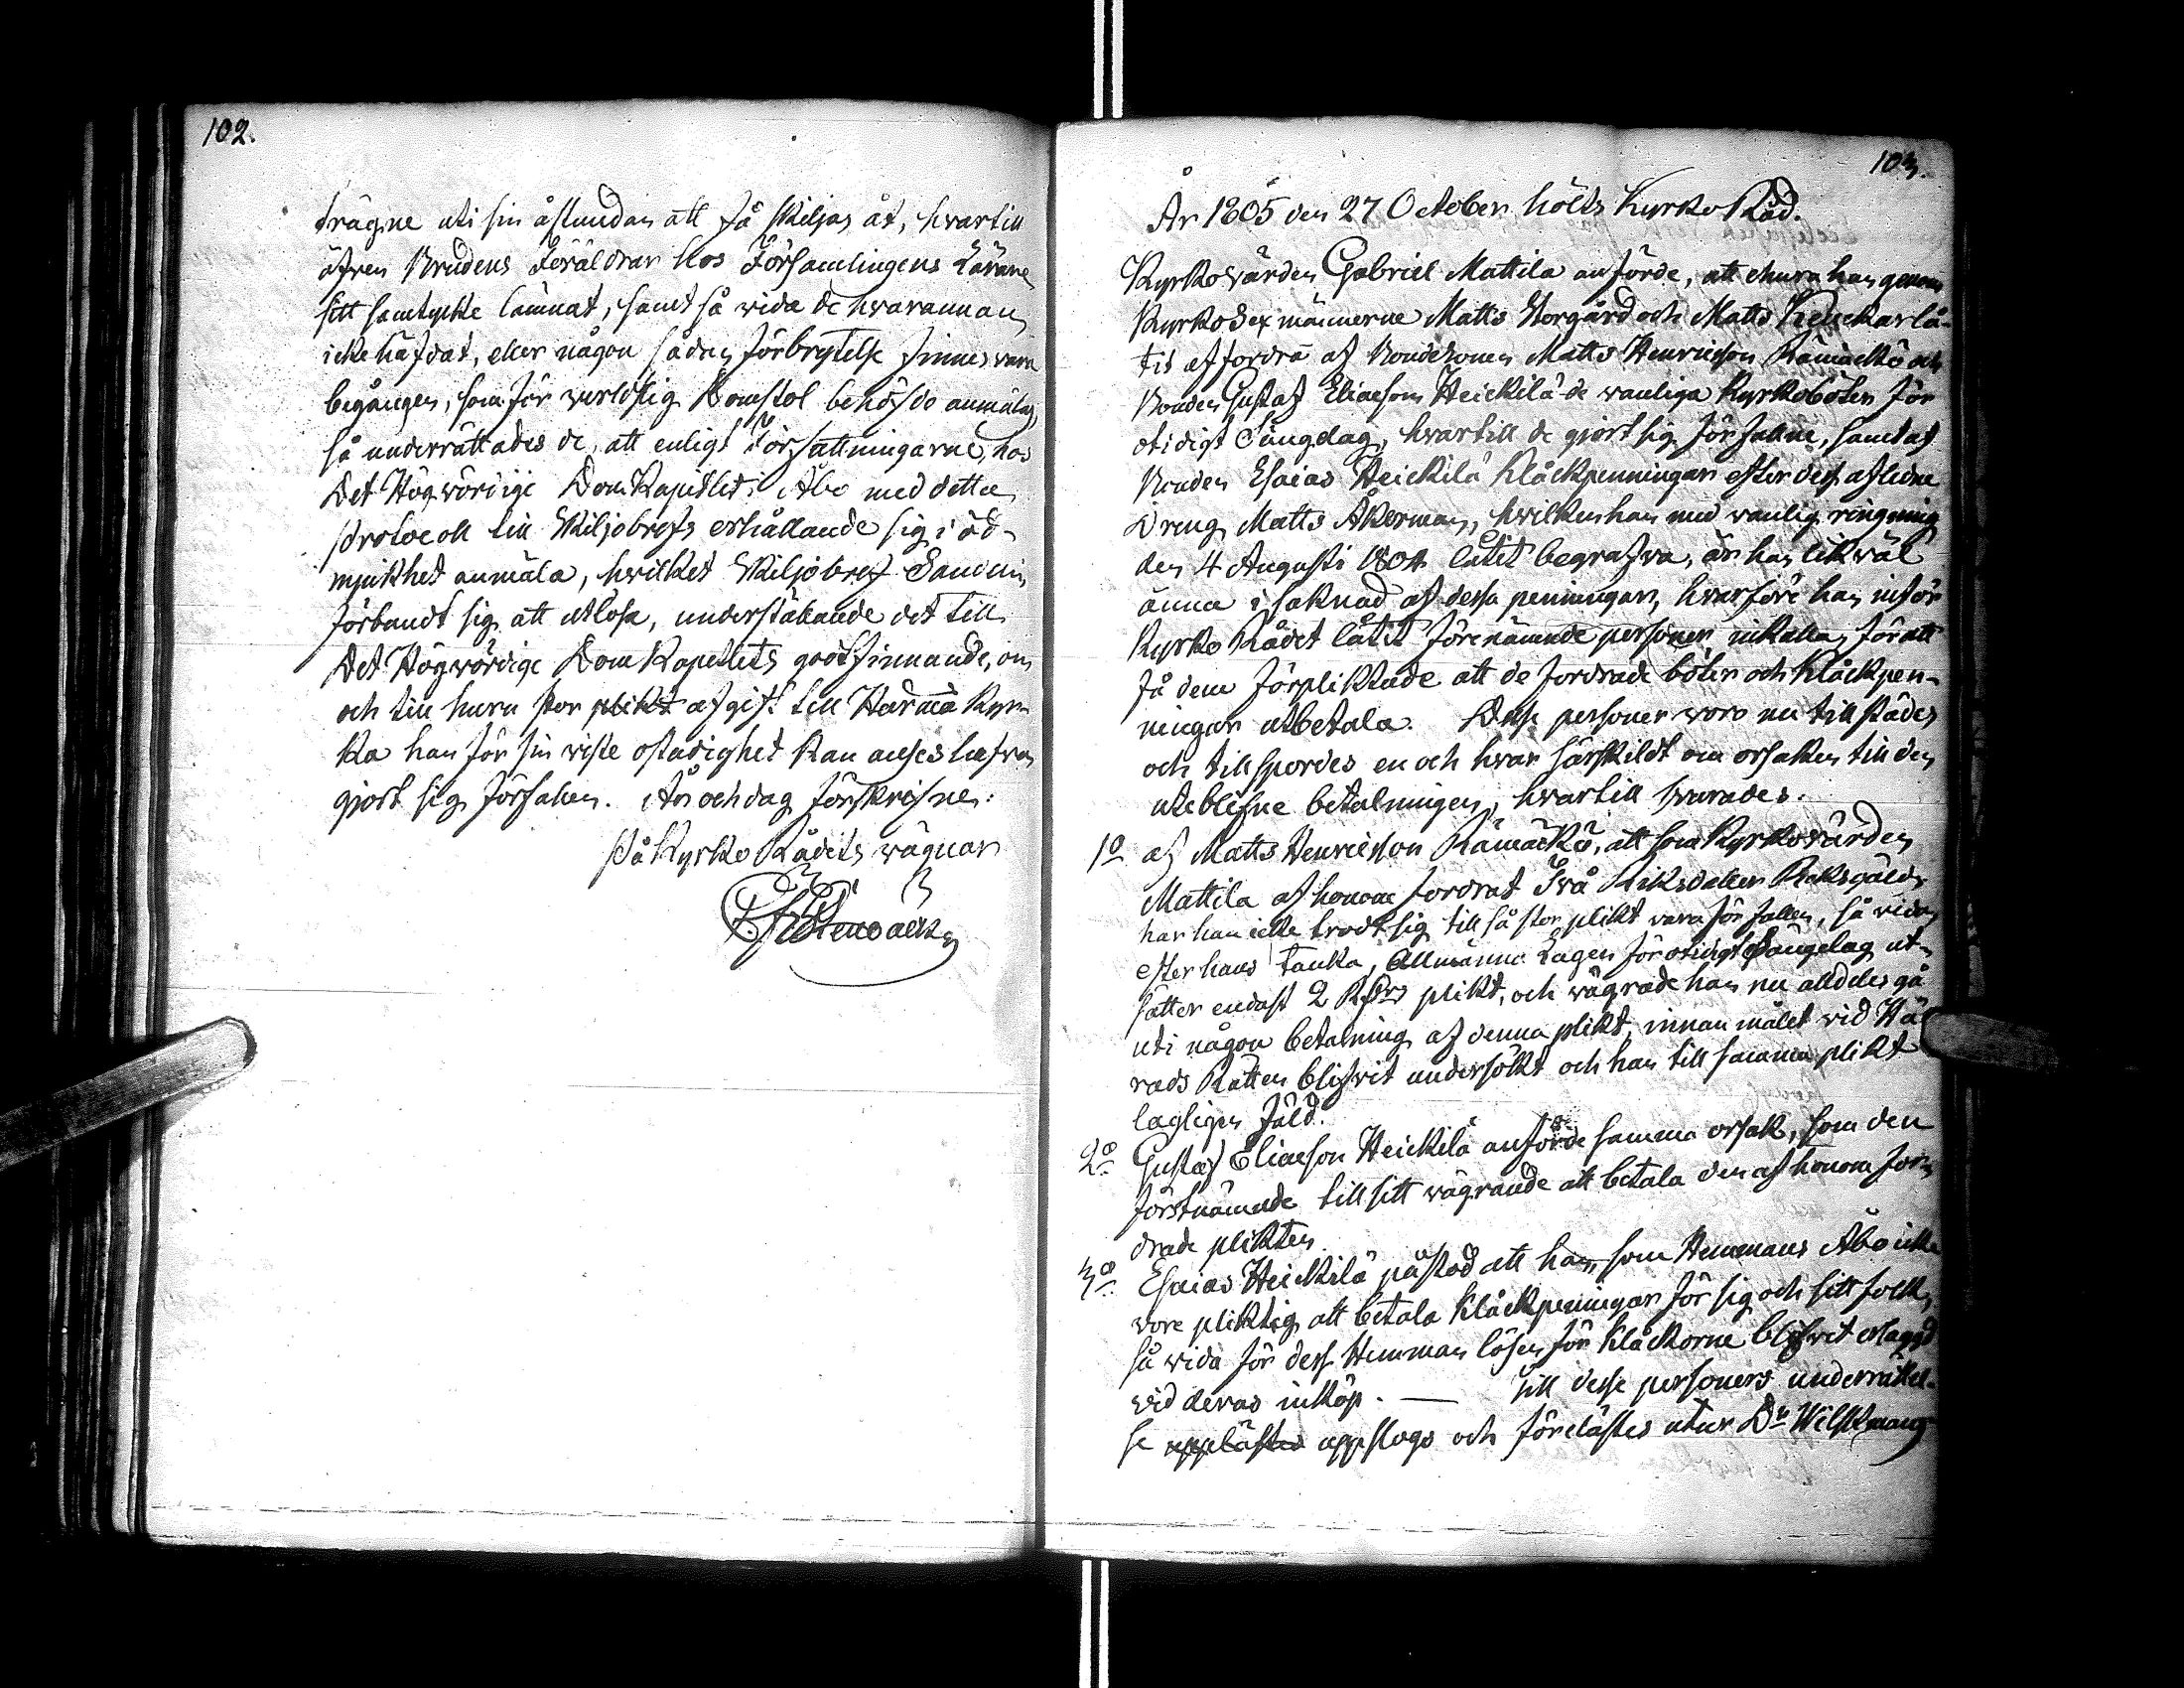 102.
trägne uti sin åstundan att få skiljas åt, hwartill
äfwen Brudens Föräldrar hos Församlingens Lärare
sitt samtycke lämnat, samt så wida de hwarannan
icke häfdat, eller någon sådan förbrytelse finnes vara
begången, som för werldslig Domstol behöfde anmälas,
så underrättades de, att enligt Författningarne, hos
Det Högwördige DomKapitlet i Åbo med detta
Protocoll till Skiljobrefs erhållande sig i öd-
mjukhet anmäla, hwilket Skiljobref
förbundt sig att utlösa, underställande det till
Det Högwördige DomKapitlets godtfinnande, om
och till huru stor plikt afgift till Härmä Kyr-
ka han för sin wiste ostadighet kan anses hafwa
gjort sig förfallen. År och dag förskrifne.
På Kyrko Rådets wägnar
103.
År 1805 den 27 October hölts Kyrko Råd.
Kyrkowärden Gabriel Mattila anförde, att ehuru han genom
KyrkoSexmännerne Matts Storgård och Matts lå-
tit affordra af Bondesonen Matts Henricsson Rämäckö och
Bonden Gustaf Eliaeson Heickilä de wanliga Kyrkoböter för
otidigt Sängelag, hwartill de gjort sig förfallne, samt af
Bonden Esaias Heickilä Klåckpenningar efter dess aflidne
Dreng Matts Åkerman, hwilken han med wanlig ringning
den 4 Augusti 1804 låtit begrafwa, är han likwäl
ännu i saknad af dessa penningar, hwarföre han inför
Kyrko Rådet låtit förenämnde personer inkalla, för att
få dem förpliktade att de fordrade böter och Klåckpen-
ningar utbetala. Desse personer woro nu tillstädes
och tillspordes en och hwar särskildt om orsaken till den
uteblifne betalningen, hwartill swarades.
1o af Matts Henricsson Rämäckö, att som Kyrkowärden
Mattila af honom fordrat Två Riksdaler Riksgälds
har han icke trodt sig till så stor plikt vara förfallen, så vida
efter hans tanka, Allmänna Lagen för otidigt Sängelag ut-
sätter endast 2 plikt, och wägrade han nu alldeles gå
uti någon betalning af denna plikt, innan målet vid Hä-
rads Rätten blifwit undersökt och han till samma plikt
lagligen fäld.
2o Gustaf Eliaeson Heickilä anförde samma orsak, som den
förstnämnde till sitt wägrande att betala den af honom for-
drade plikten
3o Esaias Heickilä påstod att han, som Hemmans Åbo icke
vore pliktig att betala Klåckpenningar för sig och sitt folk,
så wida för dess Hemman lösen för Klåckorne blifwit erlagd
vid deras inköp. — Till desse personers underrättel-
se upplästes uppslogs och förelästes utur Dr Wilskmans